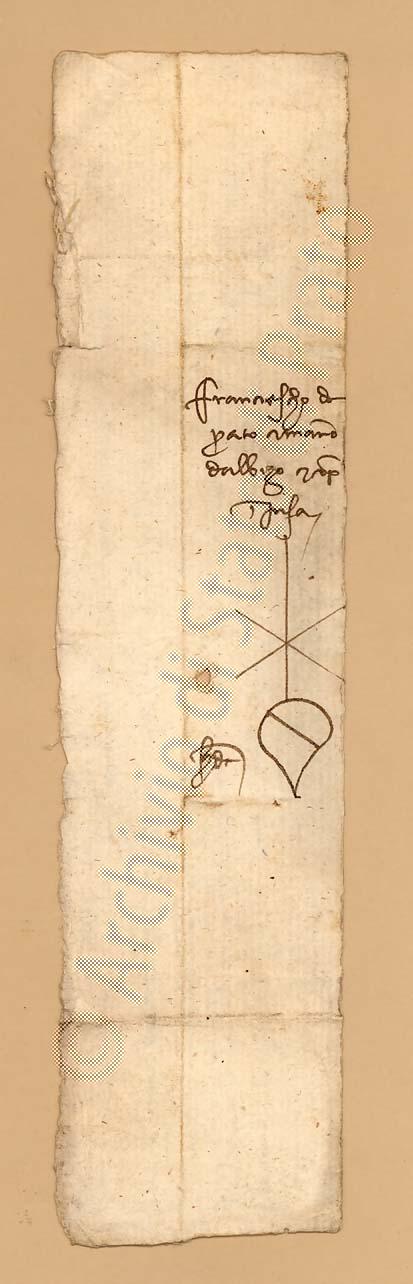 Franciescho da
prato e manno
dalbizo e cp
in pisa
© Archivio di Stato di Prato